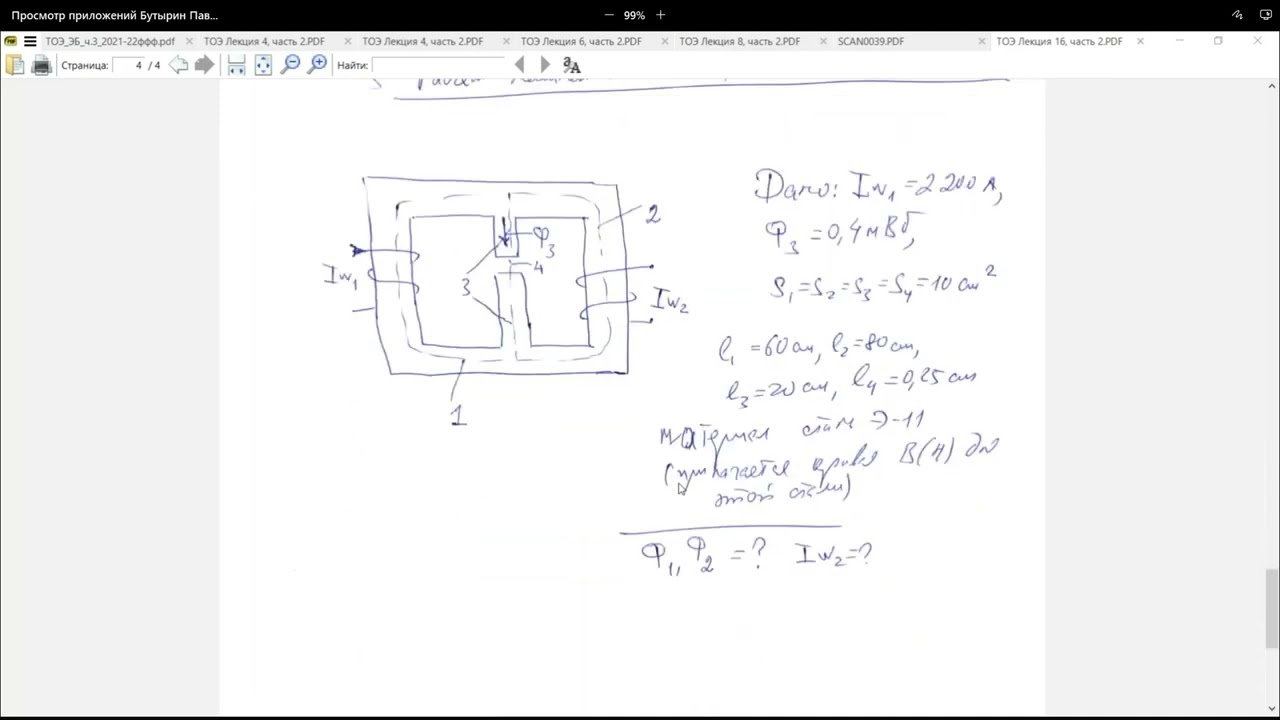 Просмотр приложений Бутырин Пав...
99%
ТОЭ_ЭБ_ч.3_2021-22ффф.pdf
ТОЭ Лекция 4, часть 2.PDF
ТОЭ Лекция 4, часть 2.PDF
ТОЭ Лекция 6, часть 2.PDF
ТОЭ Лекция 8, часть 2.PDF
SCAN0039.PDF
ТОЭ Лекция 16, часть 2.PDF
Страница: 4 / 4
Найти:
Дано: Iw₁ = 2200 А,
Φ₃ = 0,4 мВб,
S₁ = S₂ = S₃ = S₄ = 10 см²
l₁ = 60 см, l₂ = 80 см,
l₃ = 20 см, l₄ = 0,25 см
материал стали Э-11
(прилагается кривая B(H) для
этой стали)
Φ₁, Φ₂ = ? Iw₂ = ?
2
Φ₃
4
3
Iw₁
Iw₂
1